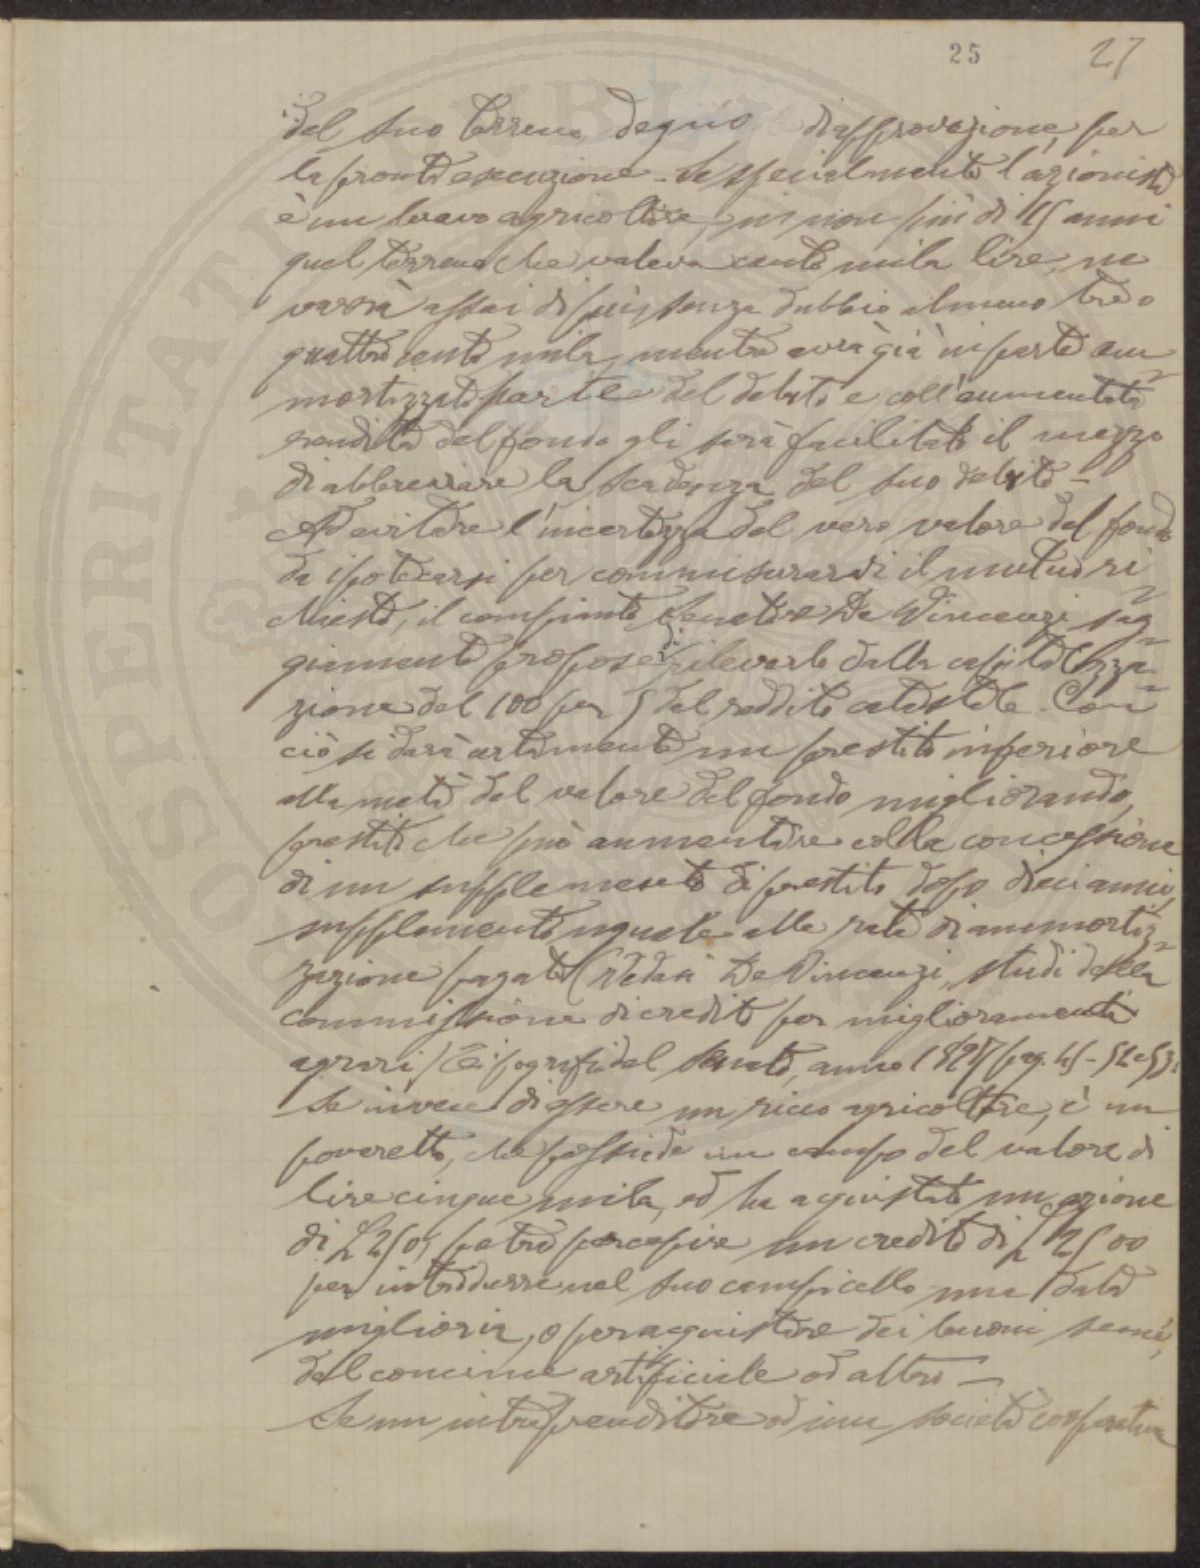 25 27
del suo terreno degno di approvazione, per
la pronta esecuzione. Se specialmente l'azionista
è un bravo agricoltore, in non più di 15 anni
quel terreno che valeva cento mila lire, ne
varrà assai di più, senza dubbio almeno tre o
quattro cento mila, mentre avrà già in parte am-
mortizzato parte del debito e coll'aumentata
rendita del fondo gli sarà facilitato il mezzo
di abbreviare la scadenza del suo debito –
Ad evitare l'incertezza del vero valore del fondo
da ipotecarsi per commisurarvi il mutuo ri-
chiesto, il compianto Senatore De Vincenzi sag-
giamente propose di rilevarlo dalla capitalizza-
zione del 100 per 5 del reddito catastale. Con
ciò si darà certamente un prestito inferiore
alla metà del valore del fondo migliorando,
prestito che può aumentare colla concessione
di un supplemento di prestito dopo dieci anni,
supplemento uguale alle rate di ammortiz-
zazione pagate (Vedasi De Vincenzi, studi della
commissione di credito per miglioramenti
agrari / Tipografia del Senato, anno 1897 pag. 45 – 52 e 53.
Se invece di essere un ricco agricoltore, è un
poveretto, che possiede un campo del valore di
lire cinque mila, ed ha acquistato un'azione
di L 250, potrà percepire un credito di L 2500
per introdurre nel suo campicello una data
miglioria, o per acquistare dei buoni semi,
del concime artificiale od altro –
Se un intraprenditore od una società cooperativa
PROSPERITATI PUBLICAE